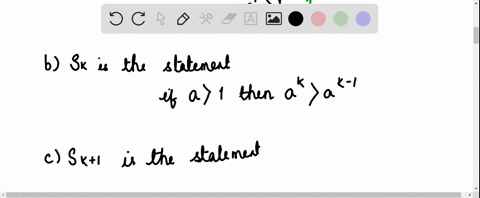 b) Sk is the statement
if a > 1 then a^k > a^{k-1}
c) Sk+1 is the statement